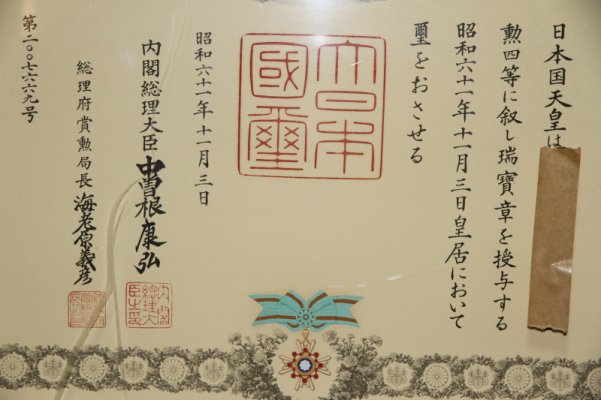 日本国天皇は
勲四等に叙し瑞寶章を授与する
昭和六十一年十一月三日皇居において
璽をおさせる
大日本國璽
昭和六十一年十一月三日
内閣総理大臣 中曽根康弘
内閣総理大臣之印
総理府賞勲局長 海老原義彦
第二〇〇七六六九号